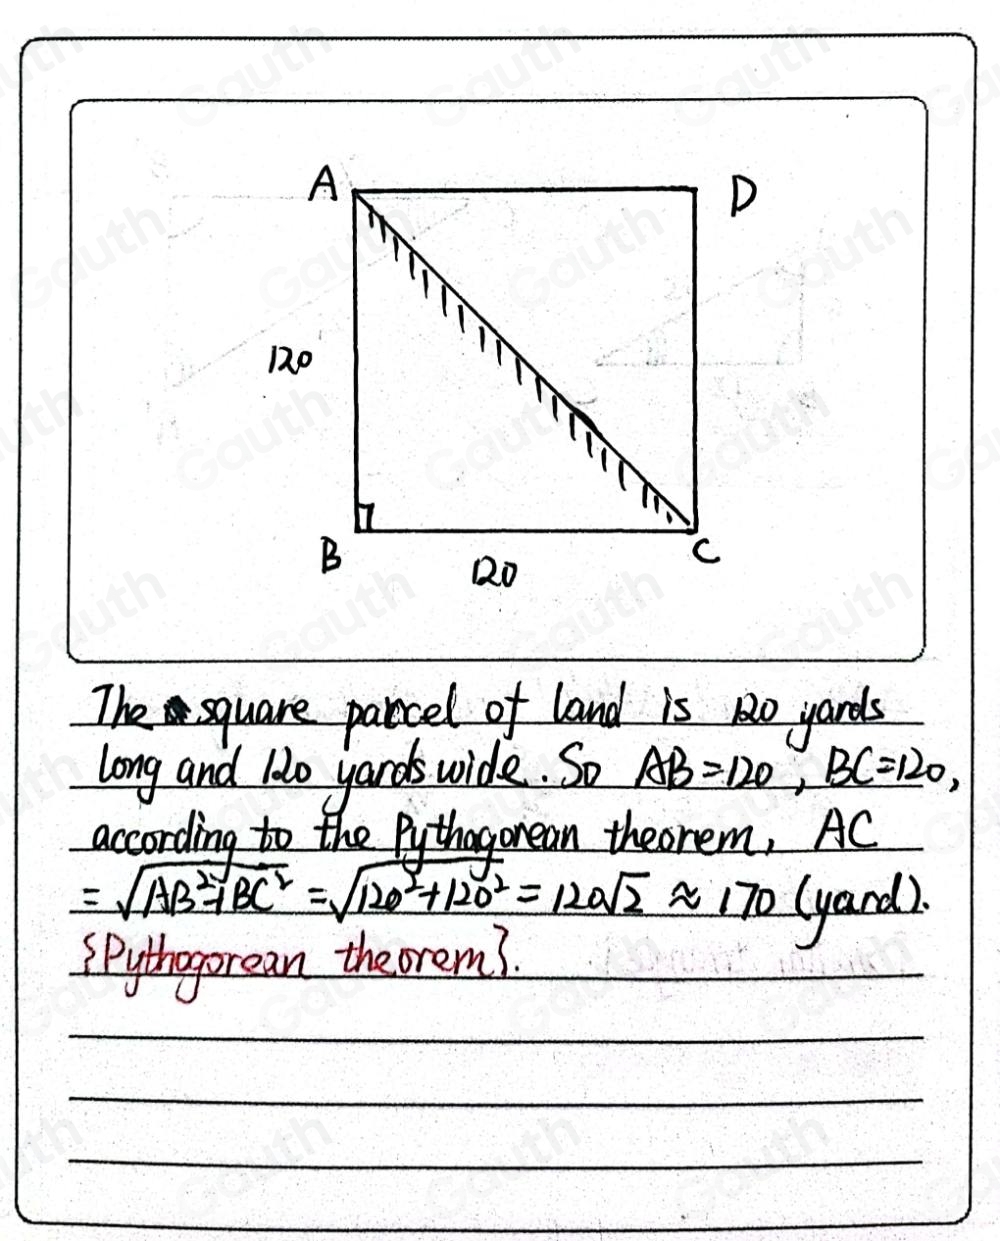 A
D
120
B
120
C
The square parcel of land is 120 yards
long and 120 yards wide. So AB=120, BC=120,
according to the Pythagorean theorem, AC
= √AB²+BC² = √120²+120² = 120√2 ≈ 170 (yard).
{Pythogorean theorem}.
Gauth